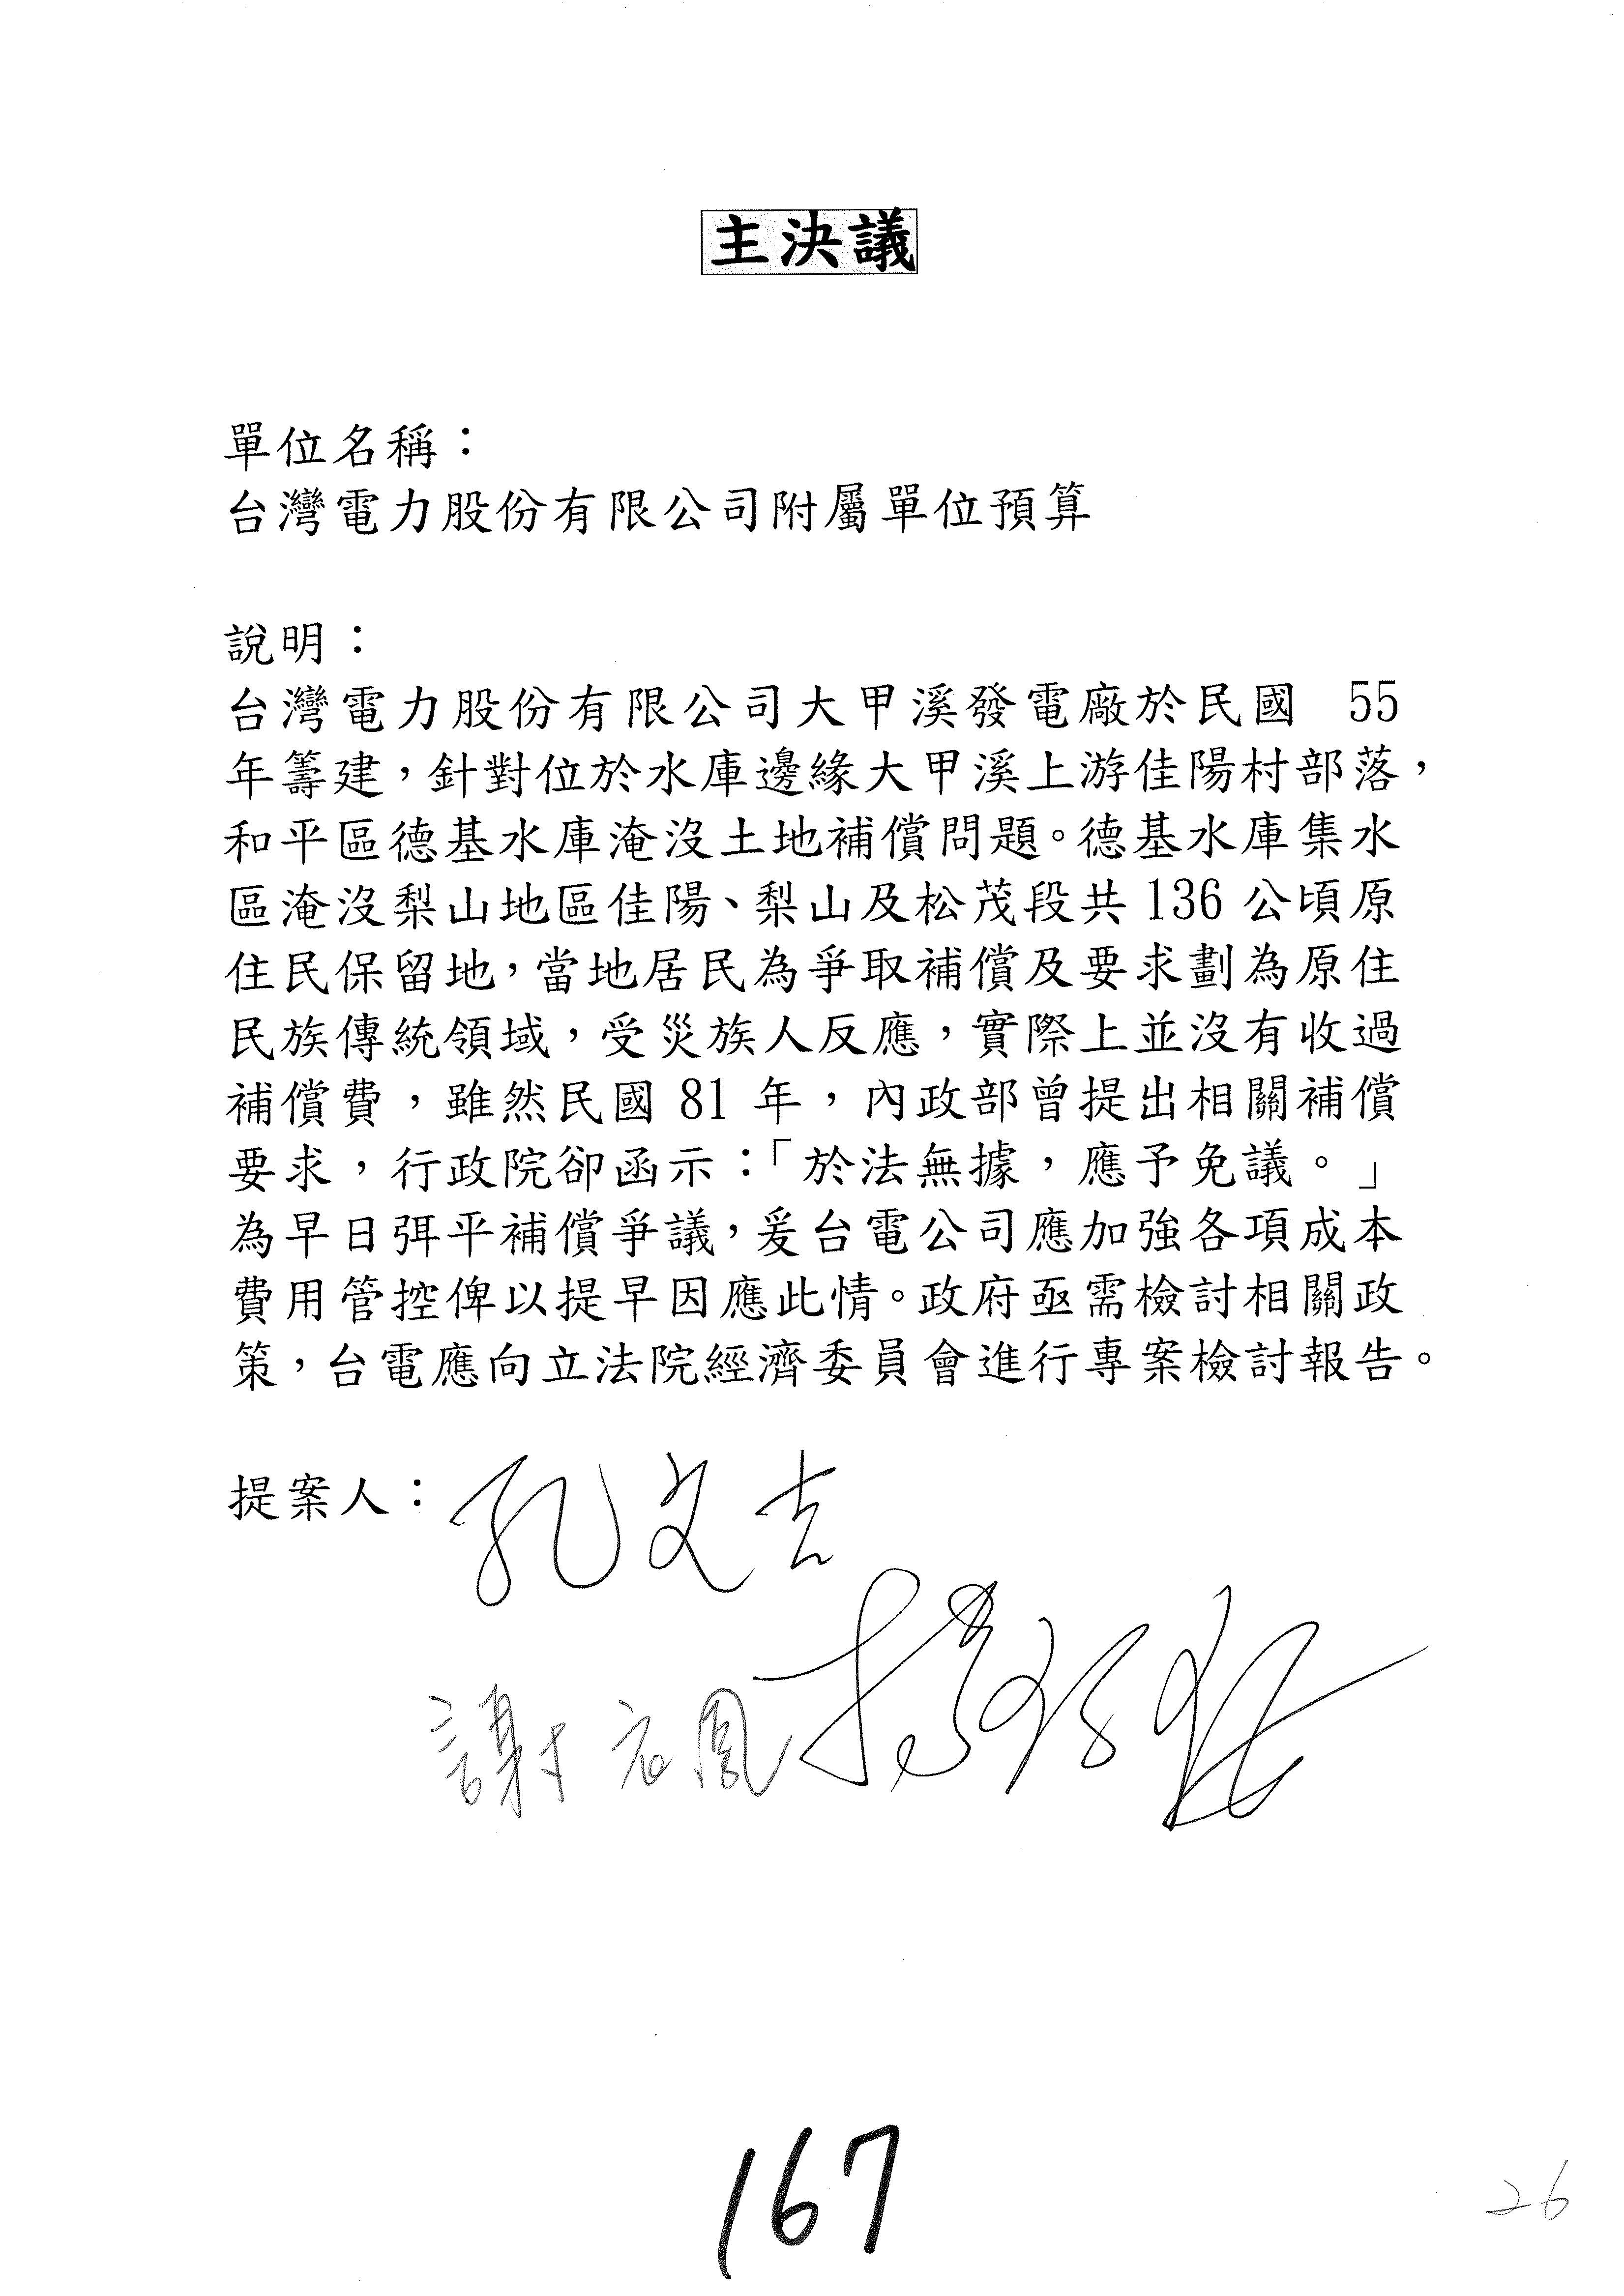 主決議
單位名稱：
台灣電力股份有限公司附屬單位預算
說明：
台灣電力股份有限公司大甲溪發電廠於民國 55
年籌建，針對位於水庫邊緣大甲溪上游佳陽村部落，
和平區德基水庫淹沒土地補償問題。德基水庫集水
區淹沒梨山地區佳陽、梨山及松茂段共 136 公頃原
住民保留地，當地居民為爭取補償及要求劃為原住
民族傳統領域，受災族人反應，實際上並沒有收過
補償費，雖然民國 81 年，內政部曾提出相關補償
要求，行政院卻函示：「於法無據，應予免議。」
為早日弭平補償爭議，爰台電公司應加強各項成本
費用管控俾以提早因應此情。政府亟需檢討相關政
策，台電應向立法院經濟委員會進行專案檢討報告。
提案人：孔文吉
謝衣鳳
167
26